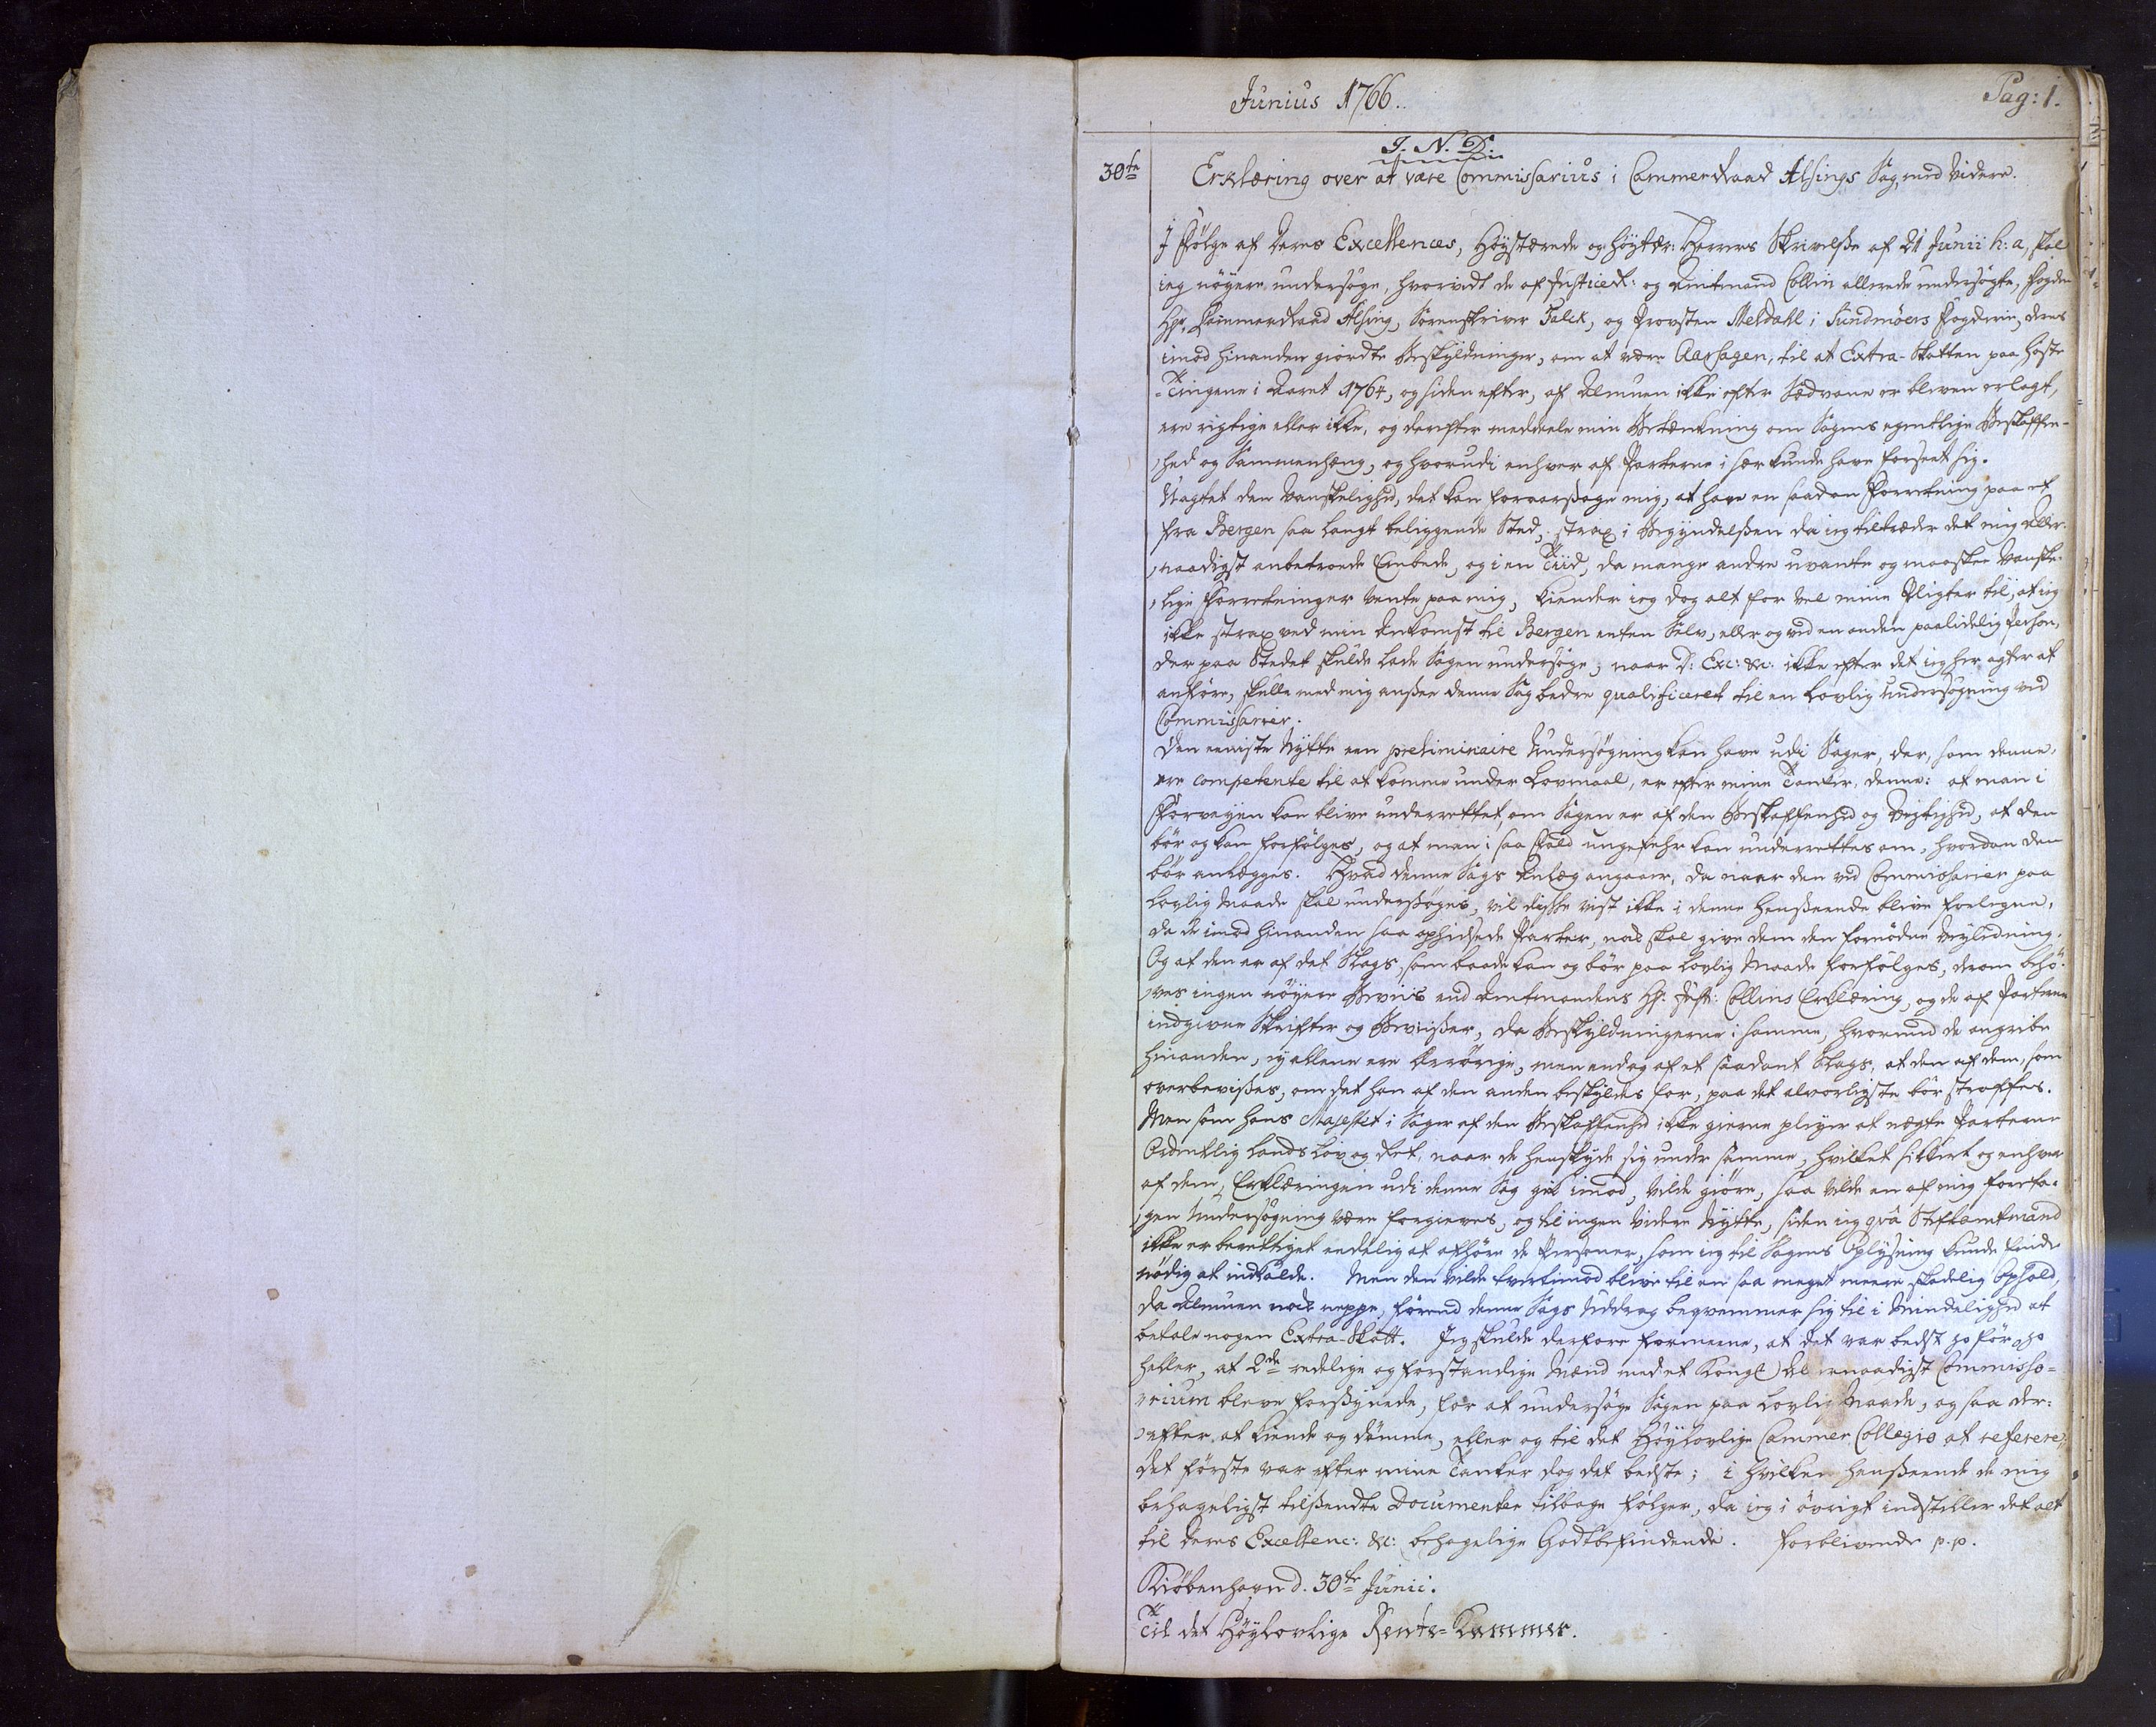 Junius 1766.
Pag: 1.
J. N. D.
30te
Erklæring over at være Commissarius i Cammerraad Alsings Sag, med videre.
I Følge af Deres Excellences, Høystærede og Høytær: Herrers Skrivelse af 21 Junii h: a, skal
ieg nøyere undersøge, hvorvidt de af JusticeR: og Amtmand Collin allerede undersøgte, Fogden
Hr. Kammerraad Alsing, Sorenskriver Falck, og Provsten Meldahl i Sundmøers Fogderie, deres
imod hinanden giordte Beskyldninger, om at være Aarsagen, til at Extra-Skatten paa Høste
-Tingene i Aaret 1764, og siden efter, af Almuen ikke efter Sædvane er bleven erlagt,
ere rigtige eller ikke, og derefter meddeele min Betænkning om Sagens egentlige Beskaffen-
hed og Sammenhæng, og hvorudi enhver af Parterne i sær kunde have forseet sig.
Uagtet den Vanskelighed, det kan foraarsage mig, at have en saadan Forretning paa et
fra Bergen saa langt beliggende Sted, strax i Begyndelsen da ieg tiltræder det mig Aller-
naadigst anbetroede Embede, og i en Tiid, da mange andre uvante og maaskee vanske-
lige Forretninger vente paa mig, kiender ieg dog alt for vel mine Pligter til, at ieg
ikke strax ved min Ankomst til Bergen enten Selv, eller og ved en anden paalidelig Person,
der paa Stedet skulde lade Sagen undersøge, naar D: Exc: &c: ikke efter det ieg her agter at
anføre, skulle med mig ansee denne Sag bedre qualificeret til en lovlig Undersøgning ved
Commissarier.
Den eeniste Nytte een preliminaire Undersøgning kan have udi Sager, der, som denne,
ere competente til at komme under Lovmaal, er efter mine Tanker, denne: at man i
Forveyen kan blive underrettet, om Sagen er af den Beskaffenhed og Vigtighed, at den
bør og kan forfølges, og at man i saa Fald ungefehr kan underrettes om, hvordan den
bør anlægges. Hvad denne Sags Anlæg angaaer, da naar den ved Commissarier paa
lovlig Maade skal undersøges, vil disse vist ikke i denne Henseende blive forlegne,
da de imod hinanden saa ophidsede Parter, nok skal give dem den fornødne Veyledning.
Og at den er af det Slags, som baade kan og bør paa lovlig Maade forfølges, derom behø-
ves ingen nøyere Beviis end Amtmandens Hr: Just: Collins Erklæring, og de af Parterne
indgivne Skrifter og Beviiser, da Beskyldningerne i samme, hvormed de angribe
hinanden, ey allene ere Ærrørige, men endog af et saadant Slags, at den af dem, som
overbevises, om det han af den anden beskyldes for, paa det alvorligste bør straffes.
Men som Hans Majestet i Sager af den Beskaffenhed ikke gierne pleyer at nægte Parterne
Ordentlig Lands Lov og Ret, naar de henskyde sig under samme, hvilket sikkert og enhver
af dem, Erklæringen udi denne Sag gik imod, vilde giøre, saa vilde en af mig foreta-
gen Undersøgning være forgieves, og til ingen videre Nytte, siden ieg qvâ Stiftamtmand
ikke er berettiget endelig at afhøre de Personer, som ieg til Sagens Oplysning kunde finde
nødig at indkalde. Men den vilde tvertimod blive til en saa meget meere skadelig Ophold,
da Almuen nok neppe, førend denne Sags Uddrag beqvemmer sig til i Mindelighed at
betale nogen Extra-Skatt. Jeg skulde derfore formeene, at det var bedst jo før jo
heller, at 2de redelige og forstandige Mænd med et Kongel Allernaadigst Commisso-
rium bleve forsynede, for at undersøge Sagen paa lovlig Maade, og saa der-
efter at kiende og dømme, eller og til det Høylovlige Cammer Collegio at referere;
det første var efter mine Tanker dog det bedste; i hvilken Henseende de mig
behageligst tilsendte Documenter tilbage følger, da ieg i øvrigt indstiller det alt
til Deres Excellenc: &c: behagelige Godtbefindende. Forblivende p.p.
Kiøbenhavn d. 30te Junii.
Til det Høylovlige Rente-Kammer.